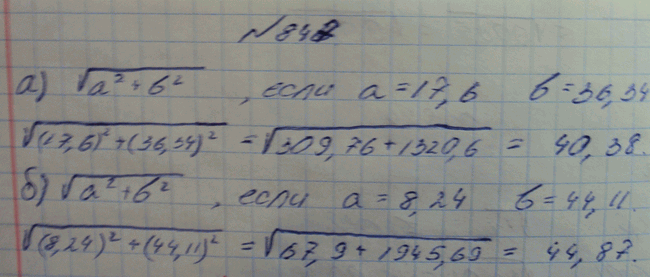 №842
а) √a²+b² , если a=17,6 b=36,34
√(17,6)²+(36,34)² = √309,76+1320,6 = 40,38.
б) √a²+b² , если a=8,24 b=44,11.
√(8,24)²+(44,11)² = √67,9+1945,69 = 44,87.